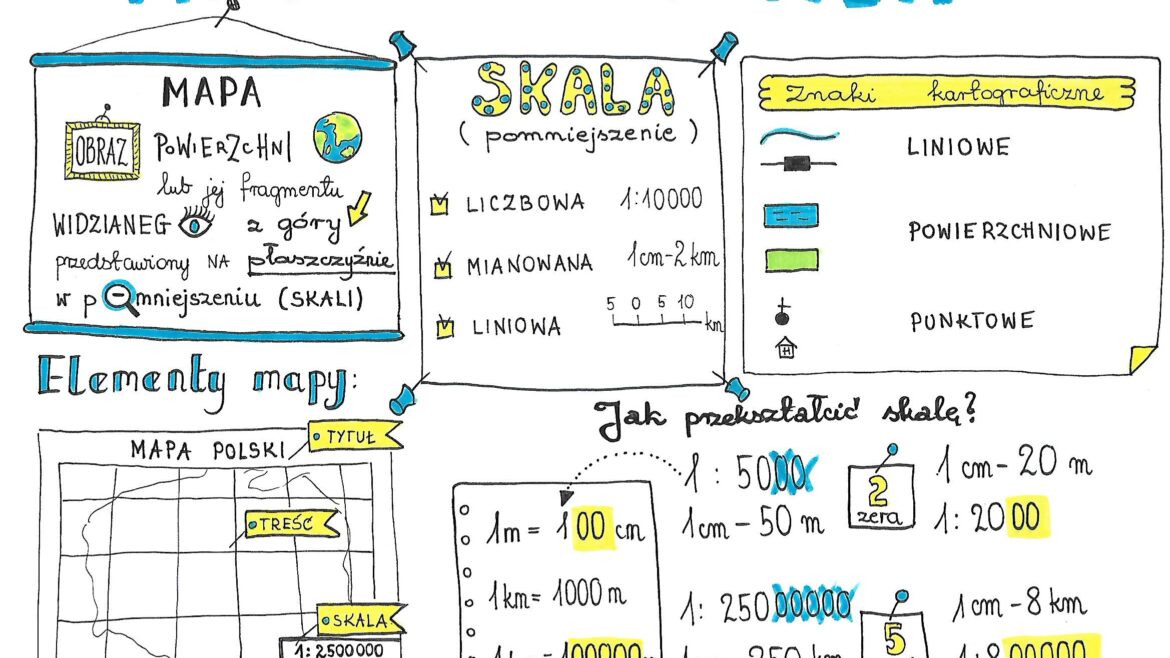 MAPA
OBRAZ POWIERZCHNI
lub jej fragmentu
WIDZIANEG z góry
przedstawiony NA płaszczyźnie
w p mniejszeniu (SKALI)
SKALA
(pomniejszenie)
LICZBOWA 1:10000
MIANOWANA 1cm-2km
LINIOWA 5 0 5 10 km
Znaki kartograficzne
LINIOWE
POWIERZCHNIOWE
PUNKTOWE
Elementy mapy:
MAPA POLSKI
TYTUŁ
TREŚĆ
SKALA
1:2500000
Jak przekształcić skalę?
1m = 100 cm
1km = 1000 m
1 : 5000
1cm - 50 m
2
zera
1 cm - 20 m
1: 2000
1: 25000000
5
1cm - 8 km